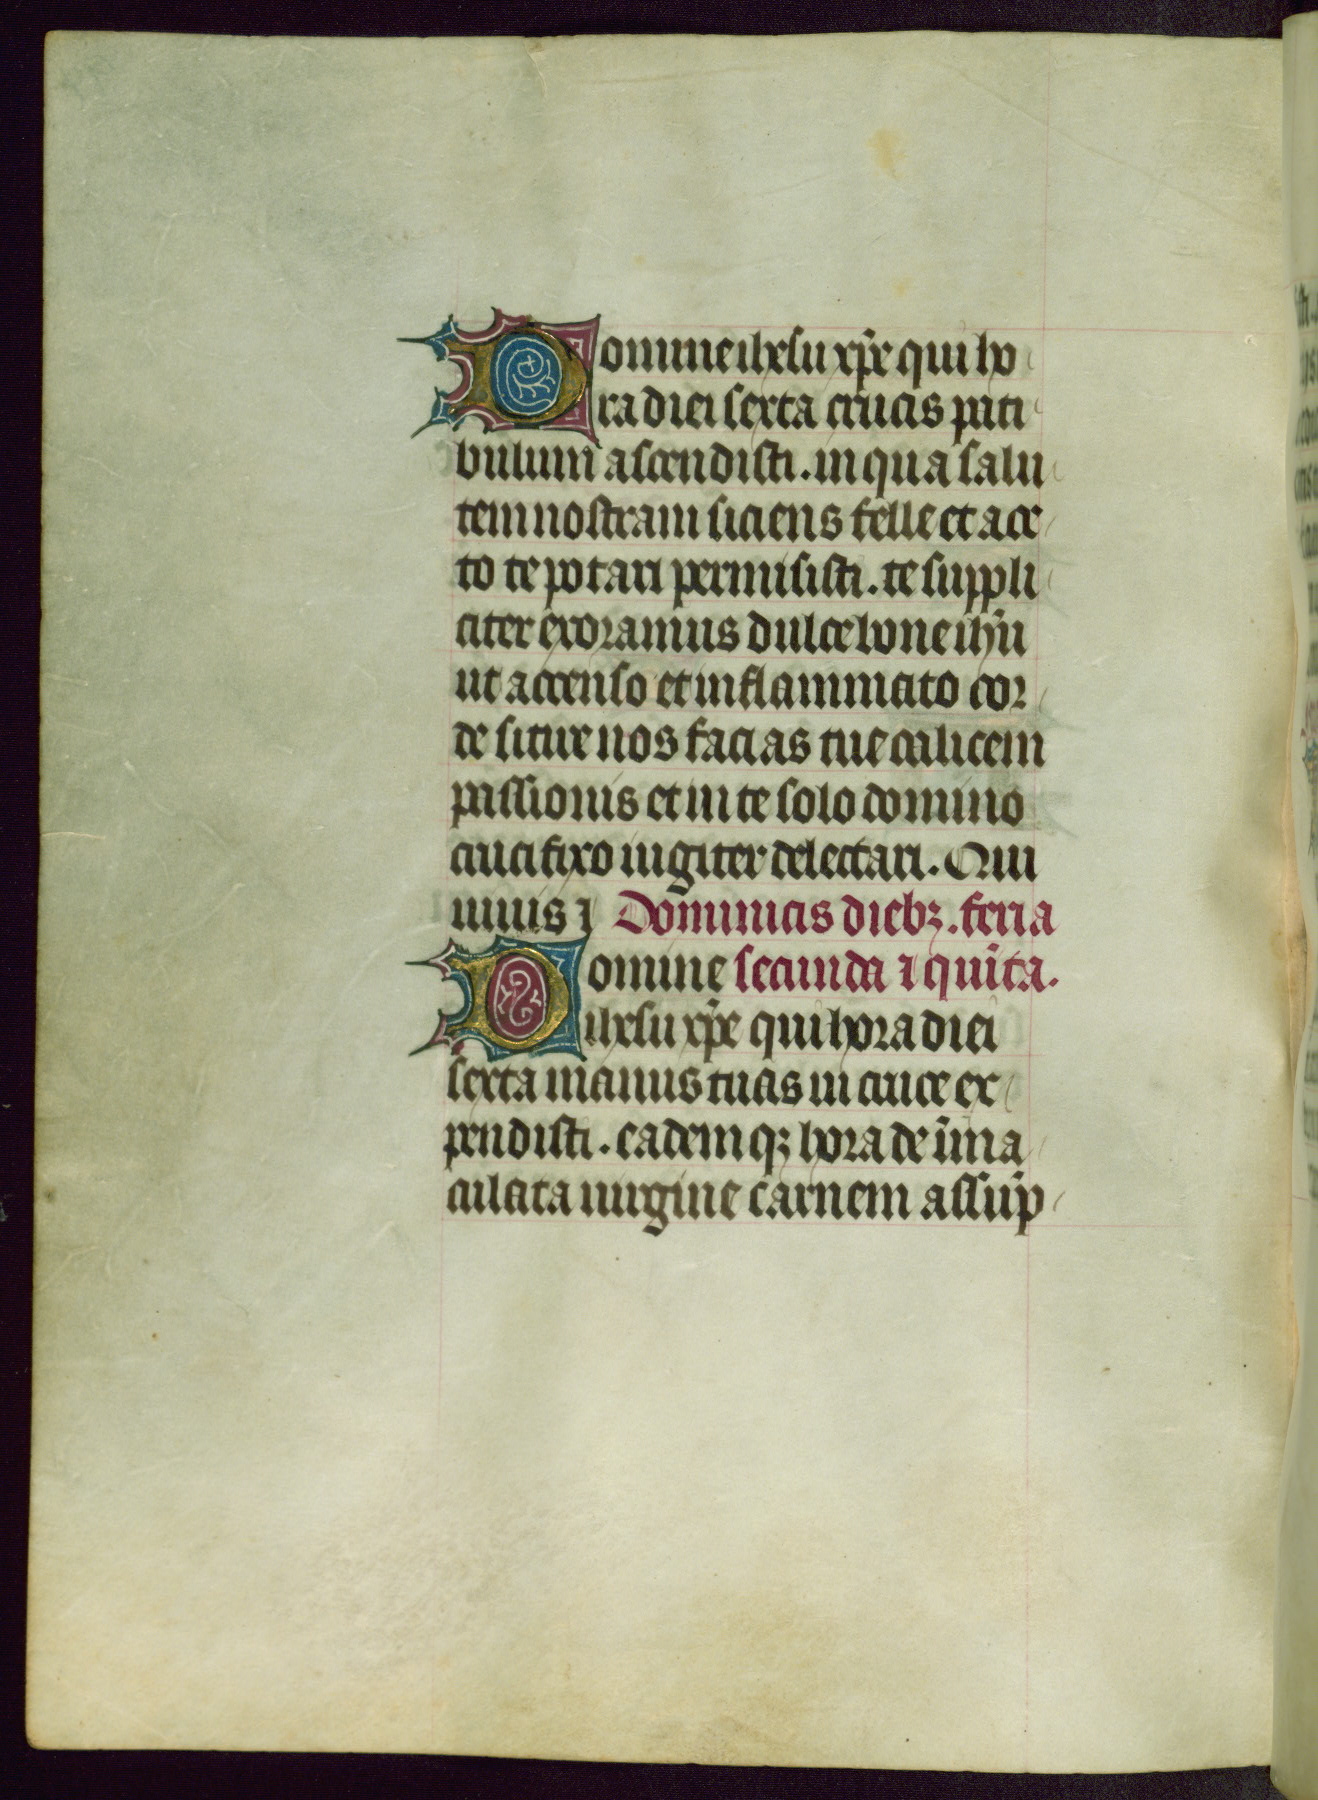 Domine ihesu xp̄e qui ho
ra diei sexta crucis pati
bulum ascendisti. in qua salu
tem nostram siciens felle et ace
to te potari permisisti. te suppli
citer exoramus dulce bone ih̄u
ut accenso et inflammato cor
de sitire nos facias tue calicem
passionis et in te solo domino
crucifixo iugiter delectari. Qui
uiuis ⁊ Dominicis diebꝫ. feria
Domine secunda ⁊ quīta.
ihesu xp̄e qui hora diei
sexta manus tuas in cruce ex
pendisti. eademqꝫ hora de īma
culata uirgine carnem assūp